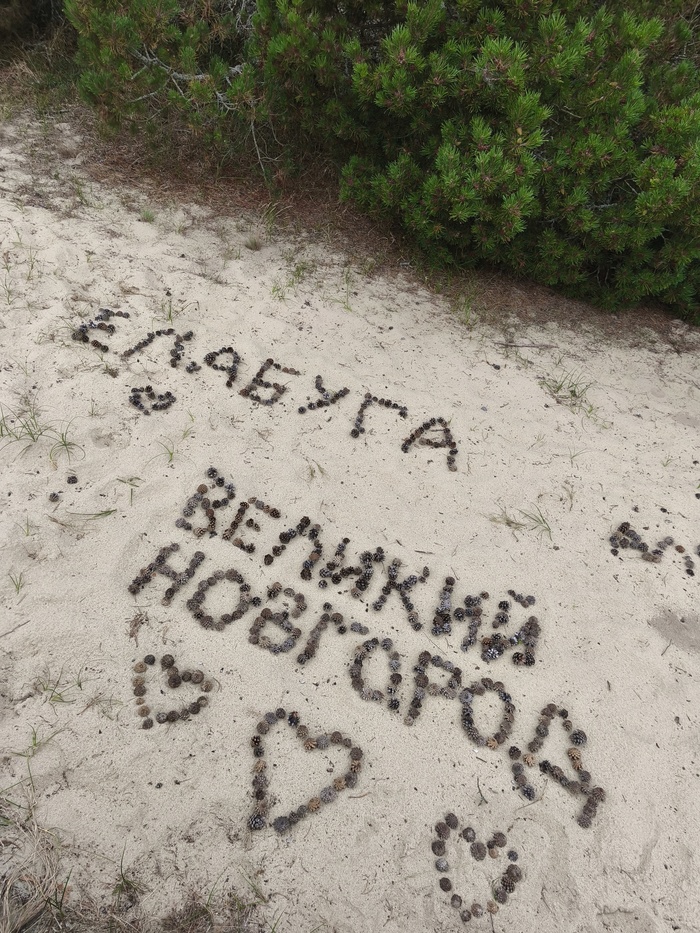 ЕЛАБУГА
ВЕЛИКИЙ
НОВГОРОД